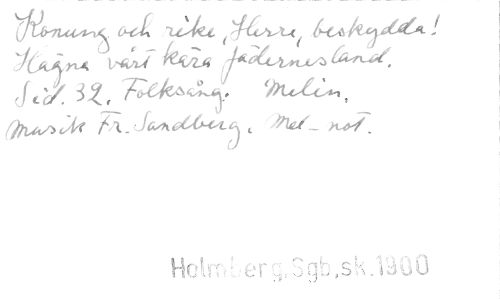 Konung och rike, Herre, beskydda!
Hägna vårt kära fädernesland.
Sid. 32. Folksång. Melin.
Musik Fr. Sandberg. Mel-not.
Holmberg, Sgb, sk. 1900